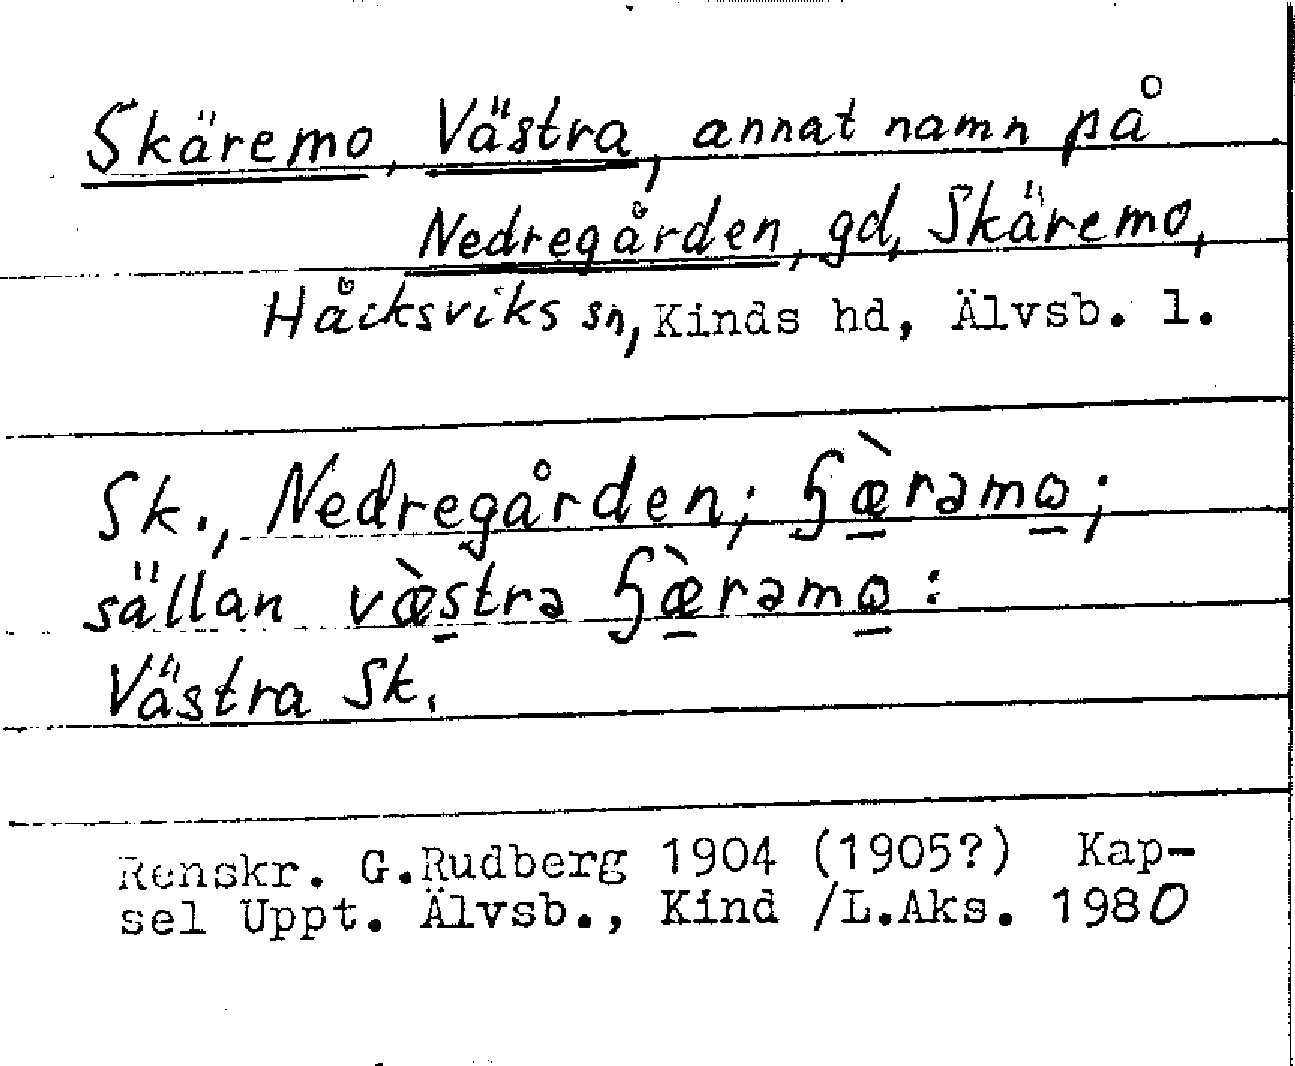 Skäremo, Västra, annat namn på
Nedregården, gd, Skäremo,
Håcksviks sn, Kinds hd, Älvsb. l.
Sk., Nedregården; ɧæ̀ramo;
sällan væ̀strə ɧæ̀rəmo:
Västra Sk.
Renskr. G.Rudberg 1904 (1905?) Kap-
sel Uppt. Älvsb., Kind /L.Aks. 1980